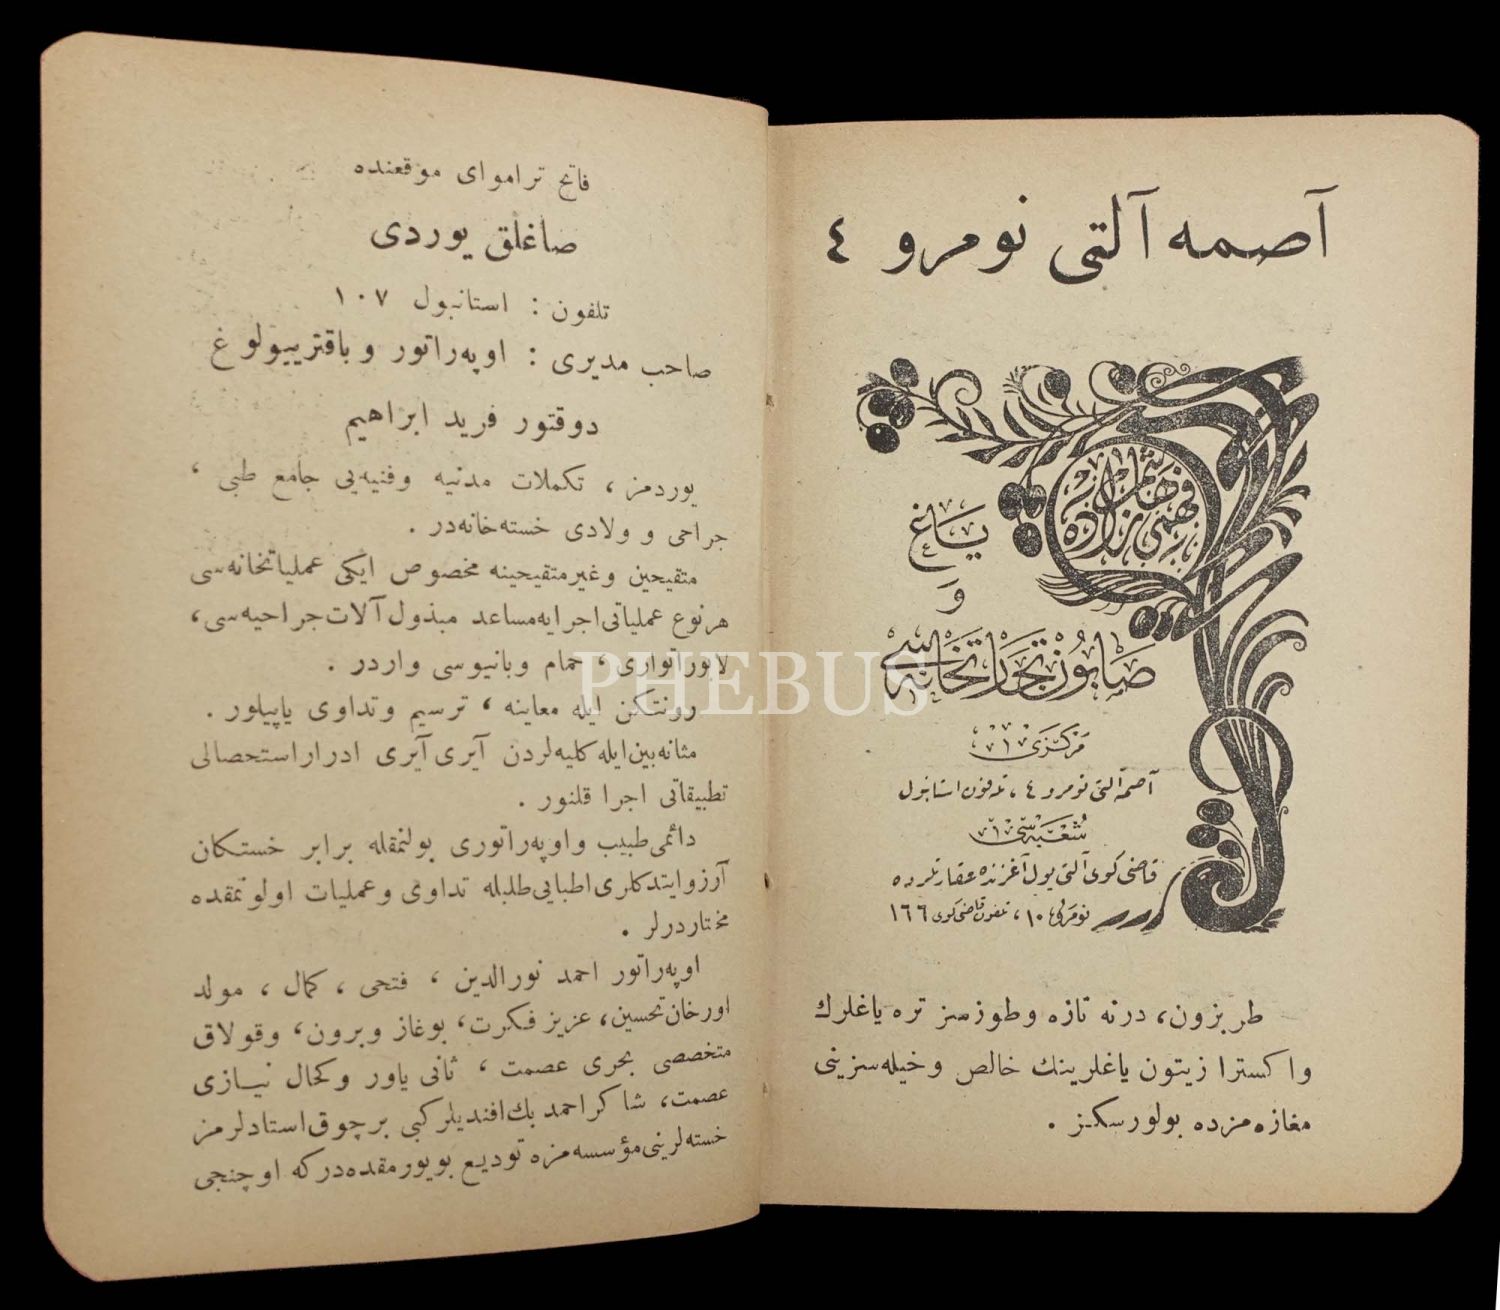 آصمه آلتی نومرو ٤
فهمی پاشا زاده
یاغ
و
صابون تجارتخانه‌سی
مرکزی
آصمه آلتی نومرو ٤ ، تلفون استانبول
شعبه‌سی
قاضی کوی آلتی یول آغزنده عقارلرده
نومرلی ١٠ ، تلفون قاضی کوی ١٦٦
طربزون، درنه تازه وطوزسز تره یاغلرك
واکسترا زیتون یاغلرینك خالص وخیله‌سزینی
مغازه‌مزده بولورسکز .
فاتح تراموای موقعنده
صاغلق یوردی
تلفون : استانبول ١٠٧
صاحب مدیری : اوپه‌راتور وباقتریولوغ
دوقتور فرید ابراهیم
یوردمز ، تکملات مدنیه وفنیه‌یی جامع طبی ،
جراحی و ولادی خسته‌خانه‌در .
متقیحین وغیرمتقیحینه مخصوص ایکی عملیاتخانه‌سی
هرنوع عملیاتی اجرایه‌مساعد مبذول آلات جراحیه‌سی،
لابوراتواری ، حمام وبانیوسی واردر .
رونتکن ایله معاینه ، ترسیم وتداوی یاپیلور .
مثانه‌بین ایله کلیه‌لردن آیری آیری ادرار استحصالی
تطبیقاتی اجرا قلنور .
دائمی طبیب واوپه‌راتوری بولنمقله برابر خستکان
آرزوایتدکلری اطبایی طلبله تداوی وعملیات اولونمقده
مختاردرلر .
اوپه‌راتور احمد نورالدین ، فتحی ، کمال ، مولد
اورخان تحسین، عزیز فکرت، بوغاز وبرون، وقولاق
متخصصی بحری عصمت ، ثانی یاور وکحال نیازی
عصمت، شاکر احمد بك افندیلر کبی برچوق استادلرمز
خسته‌لرینی مؤسسه‌مزه تودیع بویورمقده‌درکه اوچنجی
PHEBUS